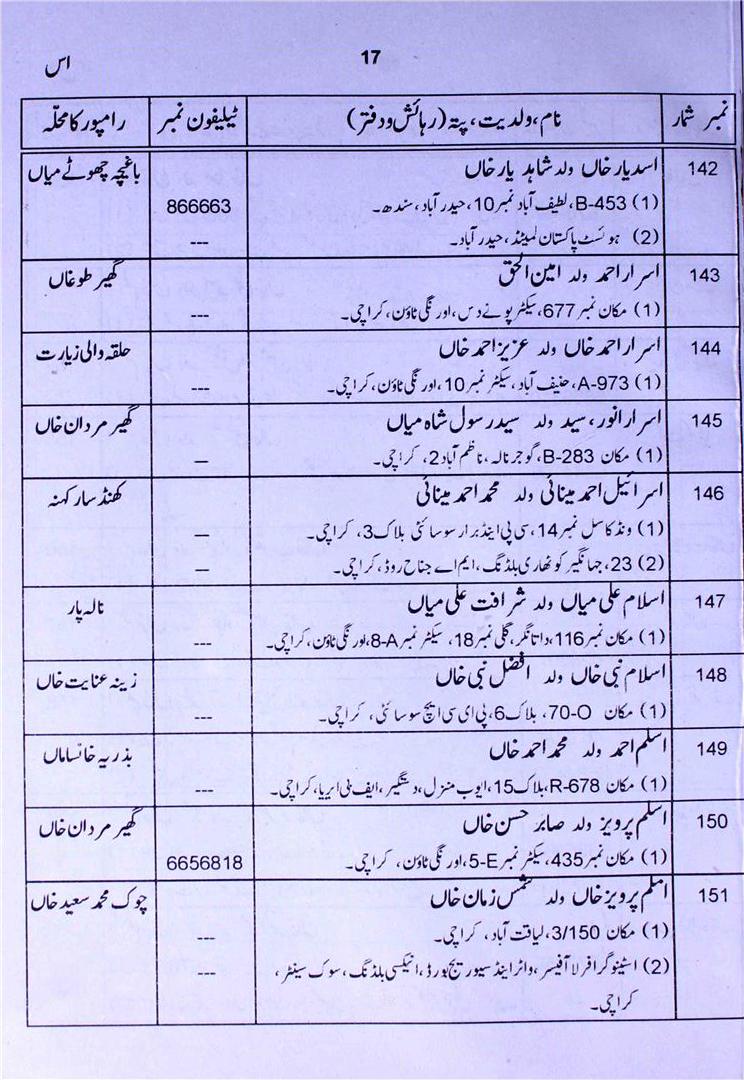 17
اس
نمبر شمار نام، ولدیت، پتہ (رہائش و دفتر) ٹیلیفون نمبر رامپور کا محلّہ
142 اسد یار خاں ولد شاہد یار خاں باغچہ چھوٹے میاں
(1) B-453، لطیف آباد نمبر 10، حیدر آباد، سندھ۔ 866663
(2) ہوئسٹ پاکستان لمیٹڈ، حیدر آباد۔ ---
143 اسرار احمد ولد امین الحق گھیر طوغاں
(1) مکان نمبر 677، سیکٹر پونے دس، اورنگی ٹاؤن، کراچی۔ ---
144 اسرار احمد خاں ولد عزیز احمد خاں حلقہ والی زیارت
(1) A-973، حنیف آباد، سیکٹر نمبر 10، اورنگی ٹاؤن، کراچی۔ ---
145 اسرار انور، سید ولد سید رسول شاہ میاں گھیر مردان خاں
(1) مکان B-283، گوجر نالہ، ناظم آباد 2، کراچی۔ —
146 اسرائیل احمد مینائی ولد محمد احمد مینائی کھنڈسار کہنہ
(1) ونڈ کاسل نمبر 14، سی پی اینڈ برار سوسائٹی بلاک 3، کراچی۔ —
(2) 23، جہانگیر کوٹھاری بلڈنگ، ایم اے جناح روڈ، کراچی۔ —
147 اسلام علی میاں ولد شرافت علی میاں نالہ پار
(1) مکان نمبر 116، داتا نگر، گلی نمبر 18، سیکٹر نمبر 8-A، اورنگی ٹاؤن، کراچی۔ ---
148 اسلام نبی خاں ولد افضل نبی خاں زینہ عنایت خاں
(1) مکان 70-O، بلاک 6، پی ای سی ایچ سوسائٹی، کراچی۔ ---
149 اسلم احمد ولد محمد احمد خاں بذریہ خانساماں
(1) مکان R-678، بلاک 15، ایوب منزل، دستگیر، ایف بی ایریا، کراچی۔ ---
150 اسلم پرویز ولد صابر حسن خاں گھیر مردان خاں
(1) مکان نمبر 435، سیکٹر نمبر 5-E، اورنگی ٹاؤن، کراچی۔ 6656818
151 اسلم پرویز خاں ولد شمس زمان خاں چوک محمد سعید خاں
(1) مکان 3/150، لیاقت آباد، کراچی۔ ---
(2) اسٹینوگرافر لا آفیسر، واٹر اینڈ سیوریج بورڈ، انیکسی بلڈنگ، سوک سینٹر، ---
کراچی۔